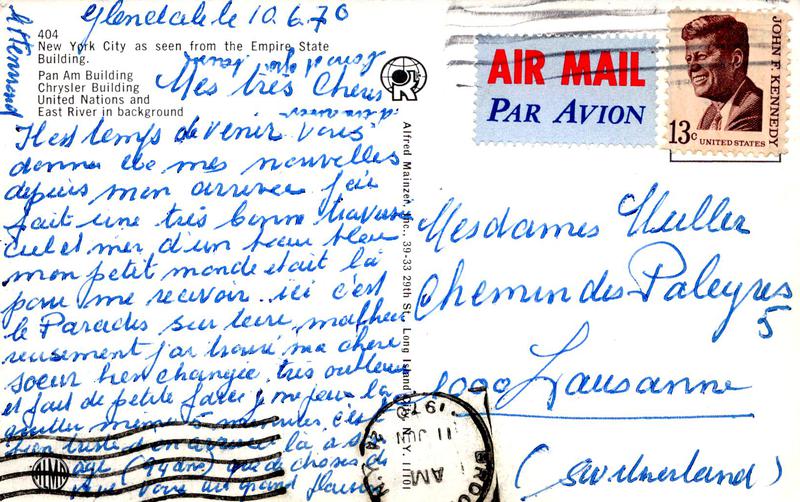 Glendale le 10.6.70
404
New York City as seen from the Empire State
Building.
Pan Am Building
Chrysler Building
United Nations and
East River in background
Mes très Chères
Il est temps de venir vous
donne de mes nouvelles
depuis mon arrivée j'ai
fait une très bonne
ciel et mer d'un beau bleu
mon petit monde était là
pour me recevoir. ici c'est
le Paradis sur terre, malheu
reusement j'ai trouvé ma chère
soeur bien changée, très
et fait de petite je ne peux la
quitter même 5 minutes, c'est
bien triste d'en arriver là a
age (94 ans) que de choses
au grand plaisir
Alfred Mainzer, Inc., 39-33 29th St., Long Island City, N.Y. 11101
AIR MAIL
PAR AVION
JOHN F. KENNEDY
13c
UNITED STATES
Mesdames Muller
Chemin des Paleyres
5
1000 Lausanne
(Switzerland)
AM
11 JUN
197